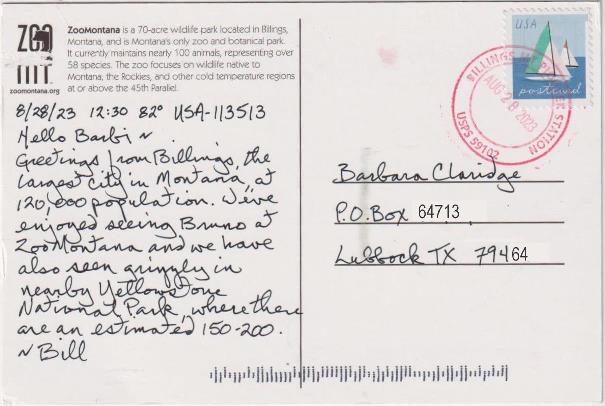 ZOO
MT
zoomontana.org
ZooMontana is a 70-acre wildlife park located in Billings,
Montana, and is Montana's only zoo and botanical park.
It currently maintains nearly 100 animals, representing over
58 species. The zoo focuses on wildlife native to
Montana, the Rockies, and other cold temperature regions
at or above the 45th Parallel.
8/28/23 12:30 82° USA-113513
Hello Barbi ~
Greetings from Billings, the
largest city in Montana, at
120,000 population. We've
enjoyed seeing Bruno at
ZooMontana and we have
also seen grizzly in
nearby Yellowstone
National Park, where there
are an estimated 150-200.
~ Bill
USA
postcard
BILLINGS STATION
AUG 28 2023
USPS 59102
Barbara Claridge
P.O. Box 64713
Lubbock TX 79464